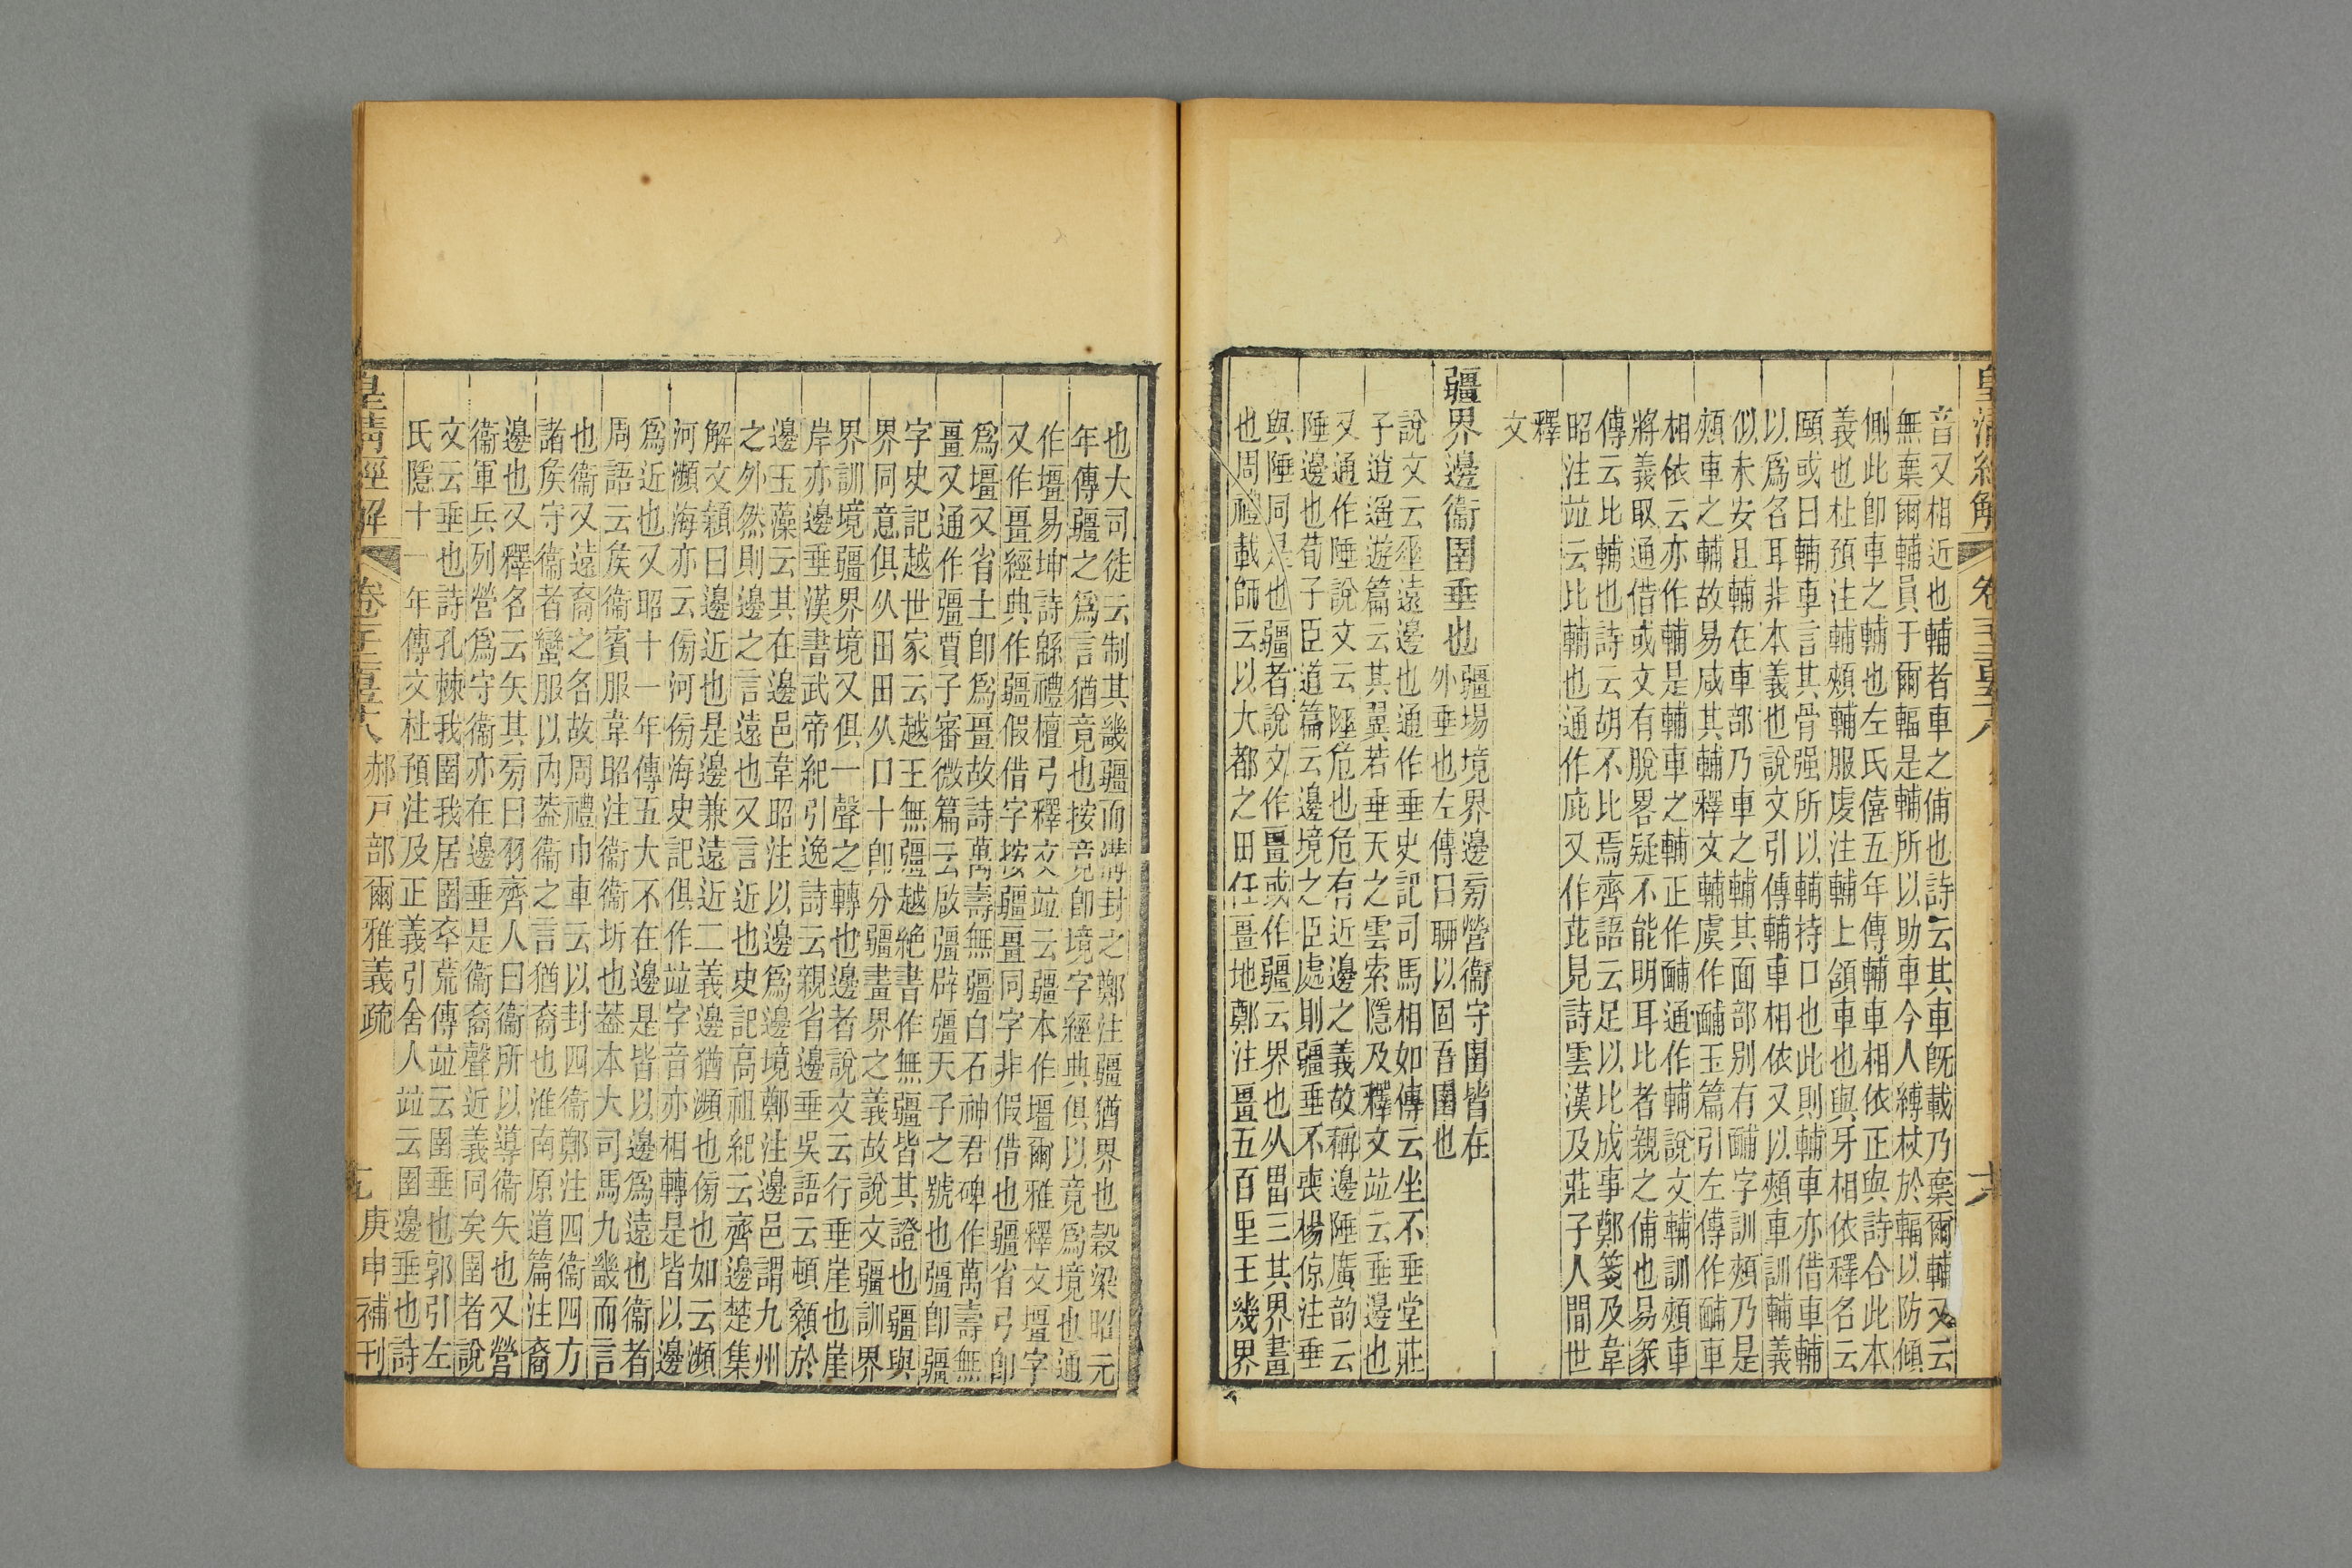 皇清經解
音又相近也輔者車之俌也詩云其車旣載乃棄爾輔又云
無棄爾輔員于爾輻是輔所以助車今人縛杖於輻以防傾
側此卽車之輔也左氏僖五年傳輔車相依正與詩合此本
義也杜預注輔頰輔服虔注輔上頷車也與牙相依釋名云
頤或曰輔車言其骨强所以輔持口也此則輔車亦借車輔
以爲名耳非本義也說文引傳輔車相依又以頰車訓輔義
似未安且輔在車部乃車之輔其面部別有䩉字訓頰乃是
頰車之輔故易咸其輔釋文輔虞作䩉玉篇引左傳作䩉車
相依云亦作輔是輔車之輔正作䩉通作輔說文輔訓頰車
將義取通借或文有脫畧疑不能明耳比者親之俌也易彖
傳云比輔也詩云胡不比焉齊語云足以比成事鄭箋及韋
昭注竝云比輔也通作庇又作芘見詩雲漢及莊子人間世
釋
文
疆界邊衞圉垂也疆場境界邊旁營衞守圉皆在
外垂也左傳曰聊以固吾圉也
說文云𡍮遠邊也通作垂史記司馬相如傳云坐不垂堂莊
子逍遙遊篇云其翼若垂天之雲索隱及釋文竝云垂邊也
又通作陲說文云陲危也危有近邊之義故稱邊陲廣韵云
陲邊也荀子臣道篇云邊境之臣處則疆垂不喪楊倞注垂
與陲同是也疆者說文作畺或作疆云界也从畕三其界畫
也周禮載師云以大都之田任畺地鄭注畺五百里王畿界
也大司徒云制其畿疆而溝封之鄭注疆猶界也穀梁昭元
年傳疆之爲言猶竟也按竟卽境字經典俱以竟爲境也通
作壃易坤詩緜禮檀弓釋文竝云疆本作壃爾雅釋文壃字
又作畺經典作疆假借字按疆畺同字非假借也疆省弓卽
爲壃又省土卽爲畺故詩萬壽無疆白石神君碑作萬壽無
畺又通作彊賈子審微篇云啟彊辟彊天子之號也彊卽疆
字史記越世家云越王無彊越絶書作無疆皆其證也疆與
界同意俱从田田从口十卽分疆畫界之義故說文疆訓界
界訓境疆界境又俱一聲之轉也邊者說文云行垂崖也崖
岸亦邊垂漢書武帝紀引逸詩云親省邊垂吳語云頓顙於
邊玉藻云其在邊邑韋昭注以邊爲邊境鄭注邊邑謂九州
之外然則邊之言遠也又言近也史記高祖紀云齊邊楚集
解文穎曰邊近也是邊兼遠近二義邊猶瀕也傍也如云瀕
河瀕海亦云傍河傍海史記俱作竝字音亦相轉是皆以邊
爲近也又昭十一年傳五大不在邊是皆以邊爲遠也衞者
周語云矦衞賓服韋昭注衞衞圻也葢本大司馬九畿而言
也衞又遠裔之名故周禮巾車云以封四衞鄭注四衞四方
諸矦守衞者蠻服以內葢衞之言猶裔也淮南原道篇注裔
邊也又釋名云矢其旁曰羽齊人曰衞所以導衞矢也又營
衞軍兵列營爲守衞亦在邊垂是衞裔聲近義同矣圉者說
文云垂也詩孔棘我圉我居圉卒荒傳竝云圉垂也郭引左
氏隱十一年傳文杜預注及正義引舍人竝云圉邊垂也詩
皇清經解
郝戸部爾雅義疏
庚申補刊